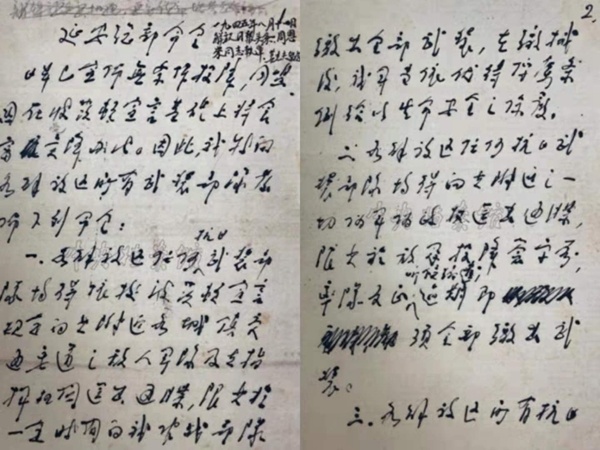 延安总部命令
一九四五年八月十日
日本已宣布无条件投降，同盟
国在波茨坦宣言基础上将会
商受降办法。因此，我特向
各解放区所有武装部队发
布下列命令：
抗日
一、各解放区任何武装部
队均得依据波茨坦宣言
规定向其附近各城镇交
通要道之敌人军队及其指
挥机关送出通牒，限其于
一定时间向我作战部队
2.
缴出全部武装，在缴械
后，我军当依优待俘虏条
例给以生命安全之保护。
二、各解放区任何抗日武
装部队均得向其附近之一
切伪军伪政权送出通牒，
限其于敌寇投降签字前，
听候编遣
率队反正，过期即
须全部缴出武
装。
三、各解放区所有抗日